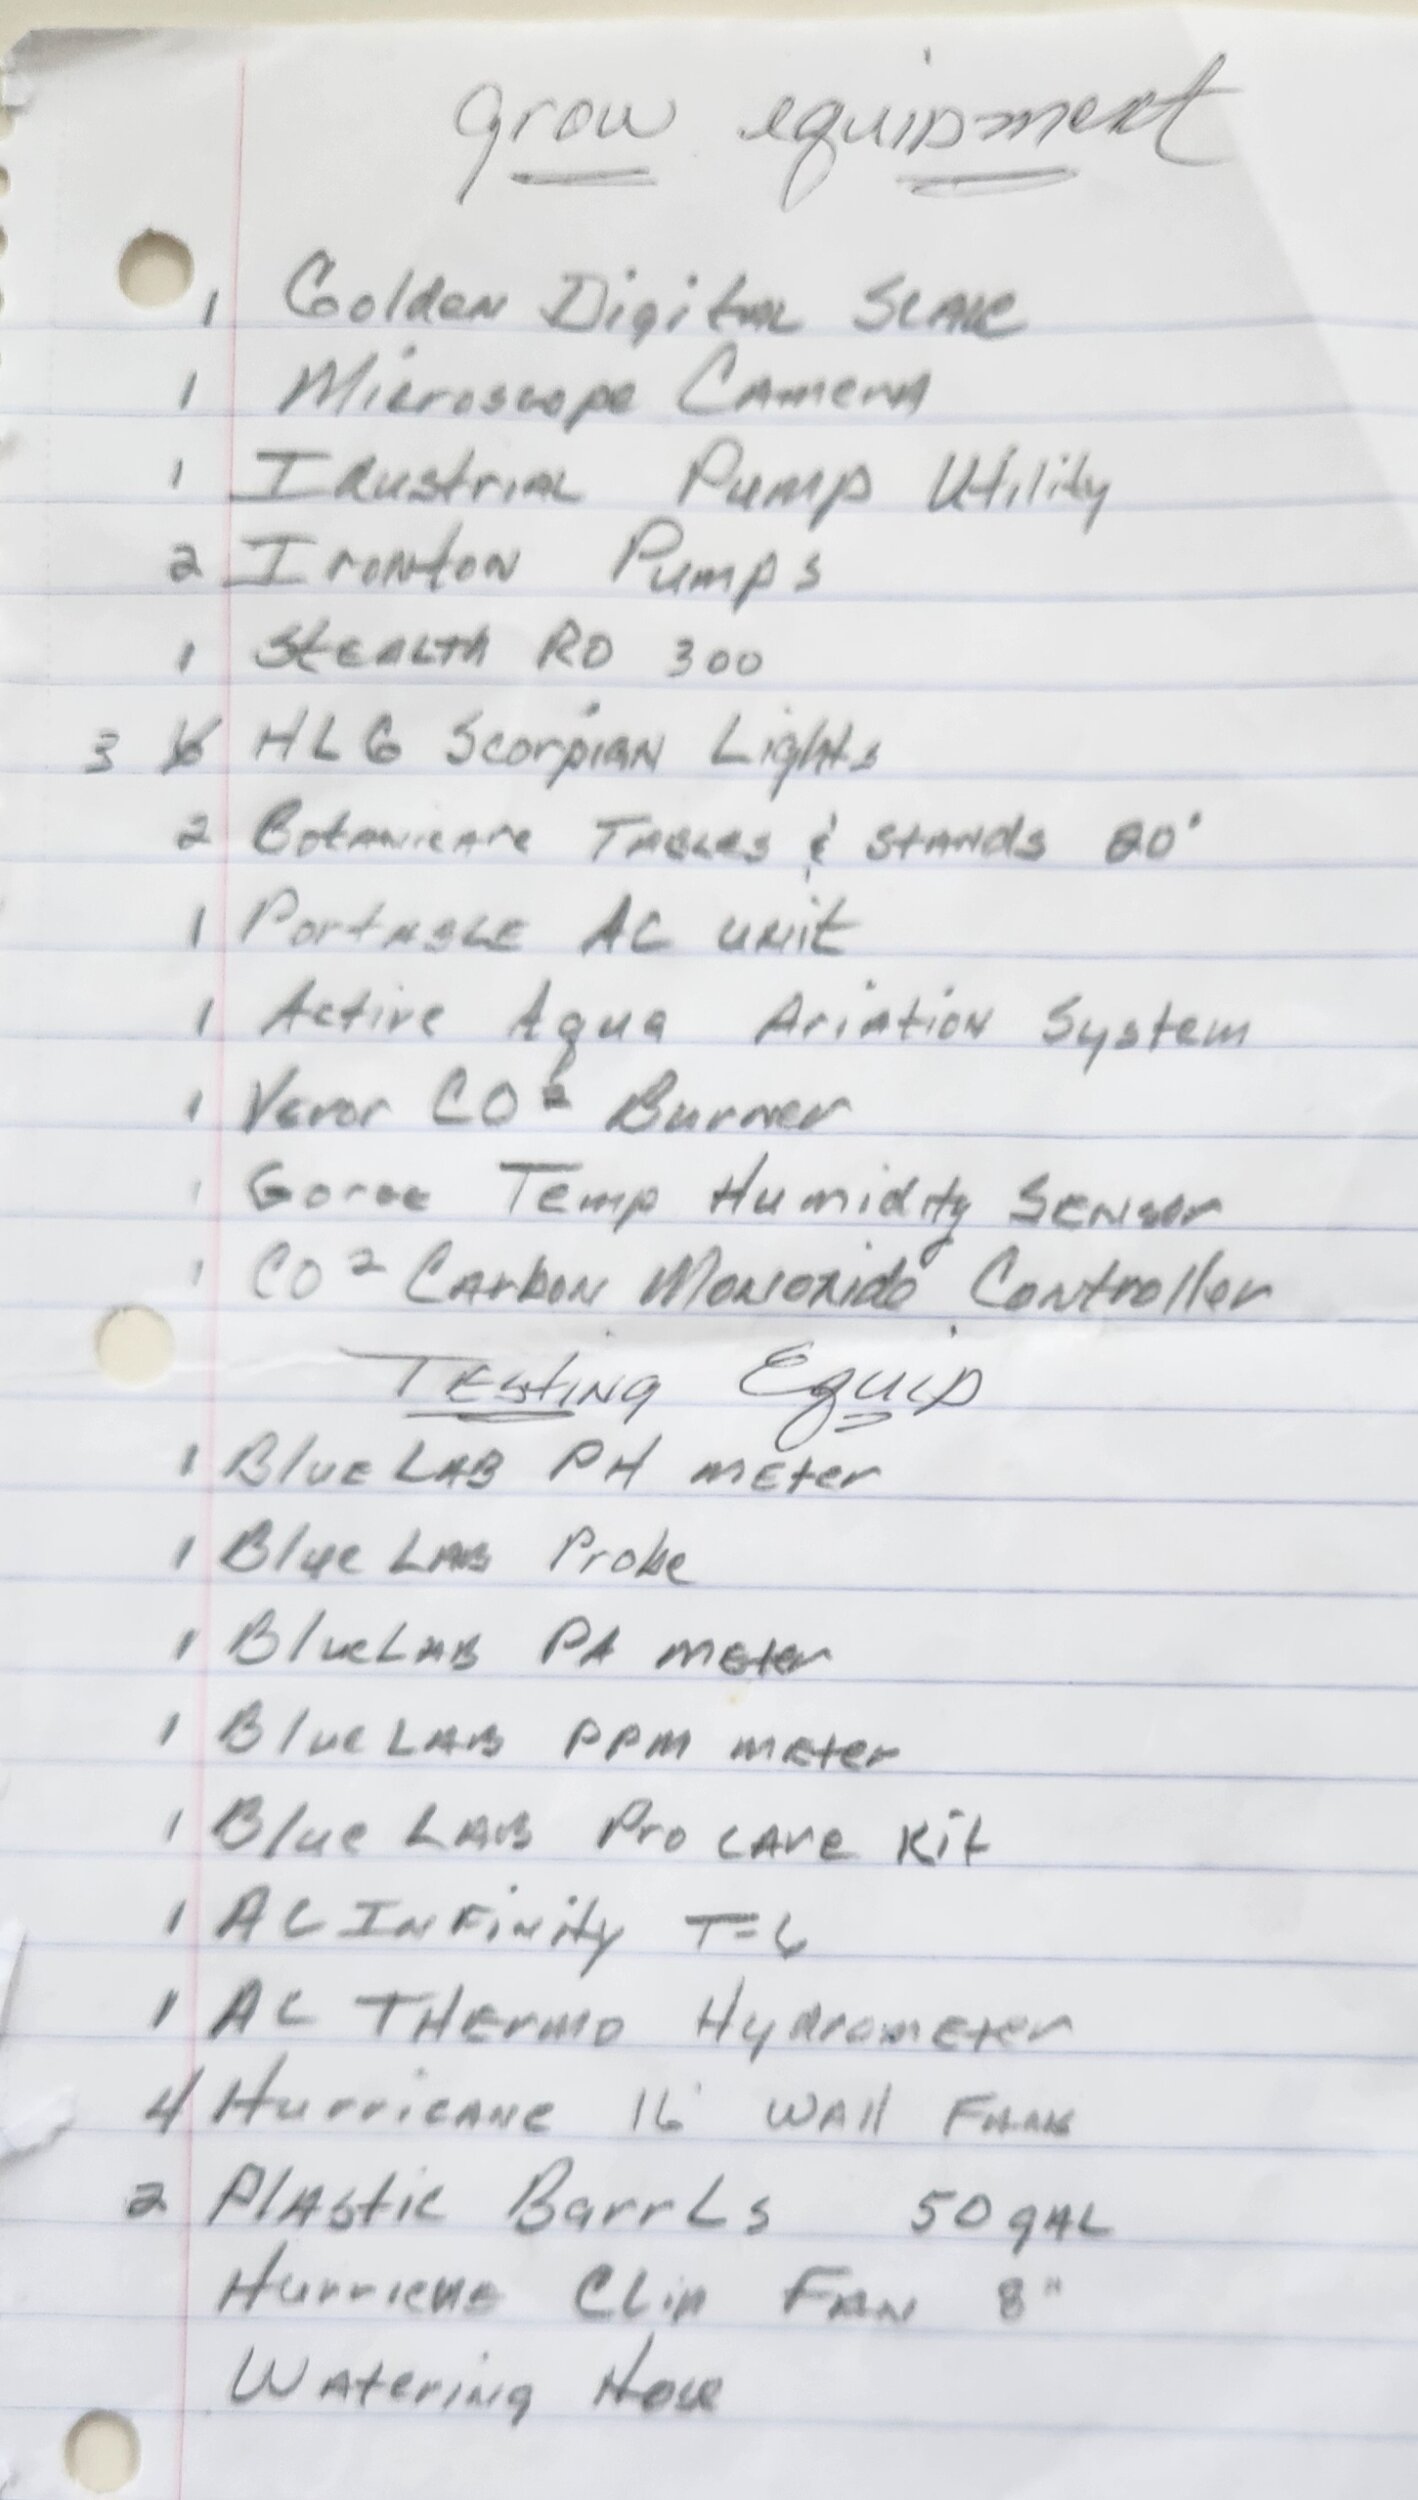 grow equipment
1 Golden Digital Scale
1 Microscope Camera
1 Idustrial Pump Utility
2 Ironton Pumps
1 Stealth RO 300
3 HLG Scorpian Lights
2 Botanicare Tables & Stands 20'
1 Portable AC unit
1 Active Aqua Ariation System
1 Vevor CO2 Burner
1 Temp Humidity Sensor
1 CO2 Carbon Monoxide Controller
Testing Equip
1 Blue LAB PH meter
1 Blue LAB Probe
1 Blue LAB meter
1 Blue LAB PPM meter
1 Blue LAB Pro care Kit
1 AC Infinity T=6
1 AC Thermo Hydrometer
4 Hurricane 16" Wall Fans
2 Plastic Barrls 50 gAL
Hurricne Clip Fan 8"
Watering Hose